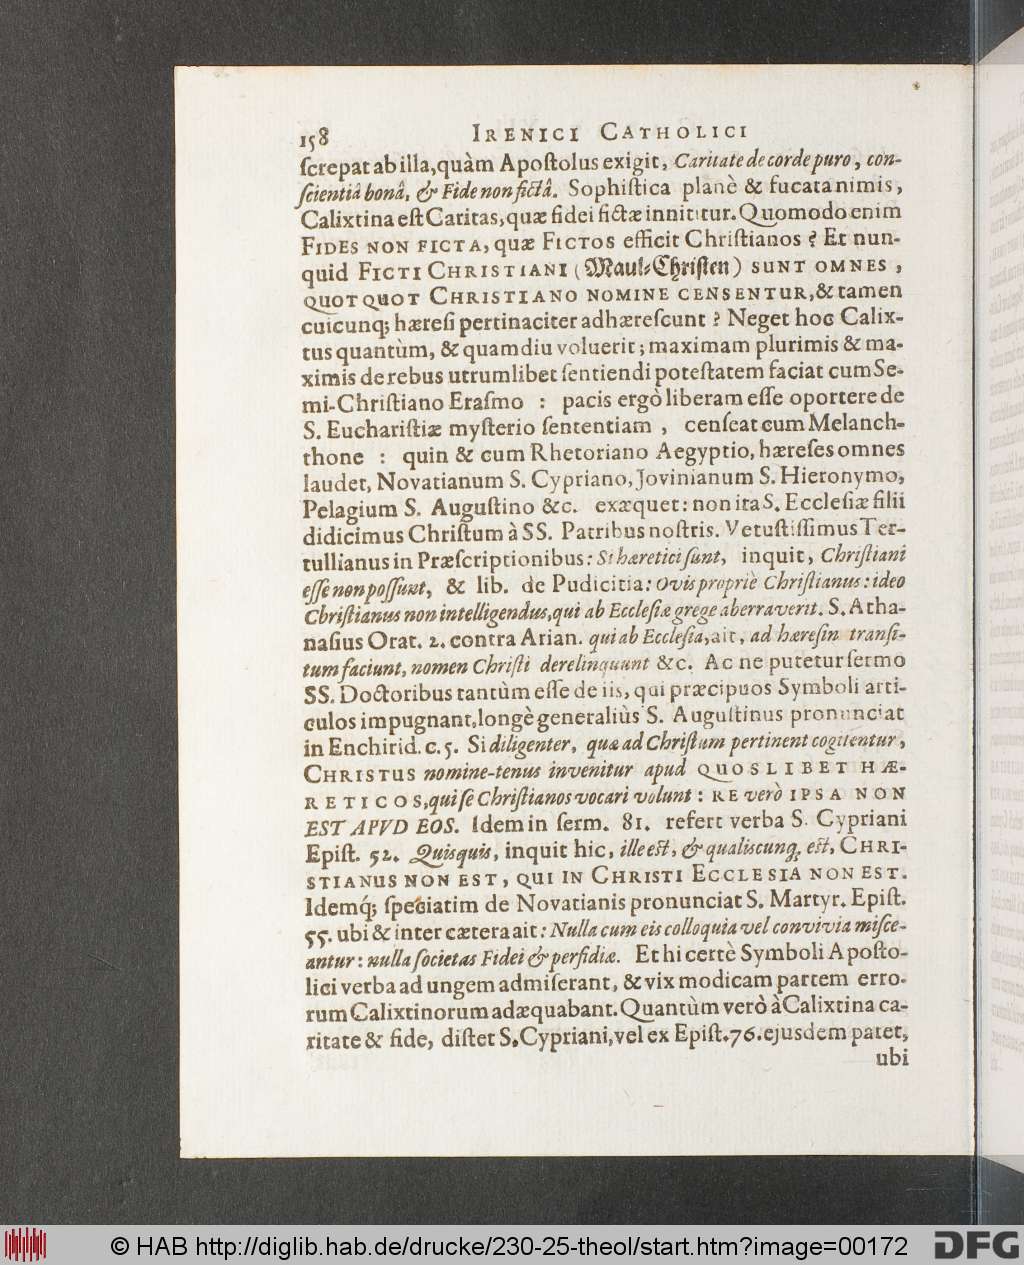 158 IRENICI CATHOLICI
ſcrepat ab illa, quàm Apoſtolus exigit, Caritate de corde puro, con-
ſcientiâ bonâ, & Fide non fictâ. Sophiſtica planè & fucata nimis,
Calixtina eſt Caritas, quæ fidei fictæ innititur. Quomodo enim
FIDES NON FICTA, quæ FICTOS efficit Chriſtianos? Et nun-
quid FICTI CHRISTIANI (Maul-Chriſten) SUNT OMNES,
QUOTQUOT CHRISTIANO NOMINE CENSENTUR, & tamen
cuicunq; hæreſi pertinaciter adhæreſcunt? Neget hoc Calix-
tus quantùm, & quamdiu voluerit; maximam plurimis & ma-
ximis de rebus utrumlibet ſentiendi poteſtatem faciat cum Se-
mi-Chriſtiano Eraſmo : pacis ergò liberam eſſe oportere de
S. Euchariſtiæ myſterio ſententiam, cenſeat cum Melanch-
thone : quin & cum Rhetoriano Aegyptio, hæreſes omnes
laudet, Novatianum S. Cypriano, Jovinianum S. Hieronymo,
Pelagium S. Auguſtino &c. exæquet: non ita S. Eccleſiæ filii
didicimus Chriſtum à SS. Patribus noſtris. Vetuſtiſſimus Ter-
tullianus in Præſcriptionibus: Si hæretici ſunt, inquit, Chriſtiani
eſſe non poſſunt, & lib. de Pudicitia: Ovis propriè Chriſtianus: ideo
Chriſtianus non intelligendus, qui ab Eccleſiæ grege aberraverit. S. Atha-
naſius Orat. 2. contra Arian. qui ab Eccleſia, ait, ad hæreſin tranſi-
tum faciunt, nomen Chriſti derelinquunt &c. Ac ne putetur ſermo
SS. Doctoribus tantùm eſſe de iis, qui præcipuos Symboli arti-
culos impugnant, longè generaliùs S. Auguſtinus pronunciat
in Enchirid. c. 5. Si diligenter, quæ ad Chriſtum pertinent cogitentur,
CHRISTUS nomine-tenus invenitur apud QUOSLIBET HÆ-
RETICOS, qui ſe Chriſtianos vocari volunt: RE verò IPSA NON
EST APVD EOS. Idem in ſerm. 81. refert verba S. Cypriani
Epiſt. 52. Quisquis, inquit hic, ille eſt, & qualiscunq; eſt, CHRI-
STIANUS NON EST, QUI IN CHRISTI ECCLESIA NON EST.
Idemq́; ſpeciatim de Novatianis pronunciat S. Martyr. Epiſt.
55. ubi & inter cætera ait: Nulla cum eis colloquia vel convivia miſce-
antur: nulla ſocietas Fidei & perfidiæ. Et hi certè Symboli Apoſto-
lici verba ad ungem admiſerant, & vix modicam partem erro-
rum Calixtinorum adæquabant. Quantùm verò à Calixtina ca-
ritate & fide, diſtet S. Cypriani, vel ex Epiſt. 76. ejusdem patet,
ubi
© HAB http://diglib.hab.de/drucke/230-25-theol/start.htm?image=00172 DFG